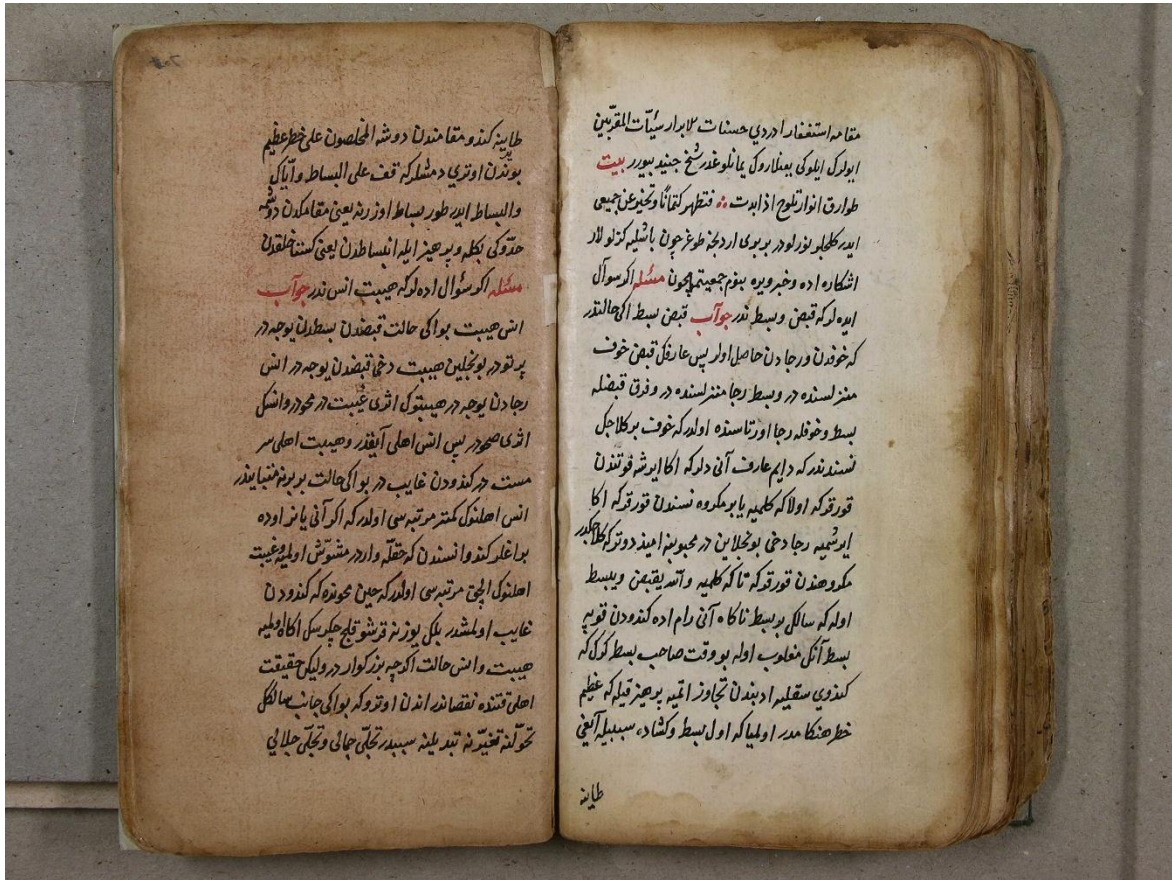 مقامه استغفار ادردي حسنات للابرار سيّآت المقرّبين
ابولرك ايلوكى يعنلاروك يمانلوغدر شيخ جنيد بيورر بيت
طوارق انوار تلوح اذا بدت ∴ فتظهر كتمانًا وتخبر عن جميعى
ايدر كلجلو نورلودر بر بوى اردنجه طوغر چون باشليه كزلولار
اشكاره اده وخبر ويره بنوم جمعيتمچون مسئله اكر سوآل
ايده لوكه قبض وبسط ندر جوآب قبض بسط اكى حالتدر
كه خوفدن ورجا دن حاصل اولر پس عارفك قبض خوف
منزلسنده در وبسط رجا منزلسنده در وفرق قبضله
بسط وخوفله رجا اورتاسنده اولدر كه خوف بر كلاجك
نسندندر كه دايم عارف آنى دلر كه اكا ايرشه فوتندن
قورقر كه اولا كه كلميه يا بر مكروه نسندن قورقر كه اكا
ايرشميه رجا دخى بونجلاين در محبوبنه اميد دوتر كه كلاجكدر
مكروهندن قورقر كه تا كه كلميه والله يقبض ويبسط
اوله كه سالك بر بسط ناكاه آنى رام اده كندودن قوپه
بسط آنك مغلوب اوله بو وقت صاحب بسط كرك كه
كندوي سقليه ادبندن تجاوز اتميه پرهيز قيله كه عظيم
خطر هنكامدر اولميا كه اول بسط وكشاد سببيله آيغى
طاينه
طاينه كندو مقامندن دوشه المخلصون على خطر عظيم
بوندن اوتري دمشلر كه قف على البساط وايّاك
والبساط ايدر طور بساط اوزرنه يعنى مقامكدن دوشمه
حدّوكى بكله وپرهيز ايله انبساطدن يعنى كستاخلقدن
مسئله اكر سؤال اده لوكه هيبت انس ندر جوآب
انس هيبت بو اكى حالت قبضدن بسطدن يوجه در
پرتودر بونجلين هيبت دخى قبضدن يوجه در انس
رجادن يوجه در هيبتوك اثرى غيبت در محودر وانسك
اثرى صحودر پس انس اهلى آيقدر وهيبت اهلى سر
مست در كندودن غايب در بو اكى حالت بربرنه متبايندر
انس اهلنوك كمتر مرتبه سى اولدر كه اكر آنى يانر اوده
براغلر كندو انسندن كه حقله واردر مشوّش اولميه وغيبت
اهلنوك الچق مرتبه سى اولدر كه حين محونده كه كندودن
غايب اولمشدر بلكى يوزنه قرشو قلج چكرسك اكاه اولميه
هيبت وانس حالت اكرچه بزركوار در وليكن حقيقت
اهلى قتنده نقصاندر اندن اوترو كه بو اكى جانب سالكك
تحوّلنه تغيّرنه تبديلنه سببدر تجلّى جمالى وتجلّى جلالى